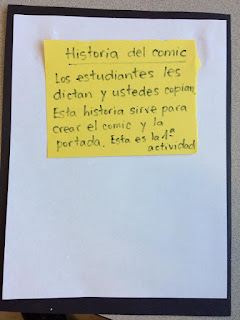 Historia del comic
Los estudiantes les
dictan y ustedes copian.
Esta historia sirve para
crear el comic y la
portada. Esta es la 1ª
actividad